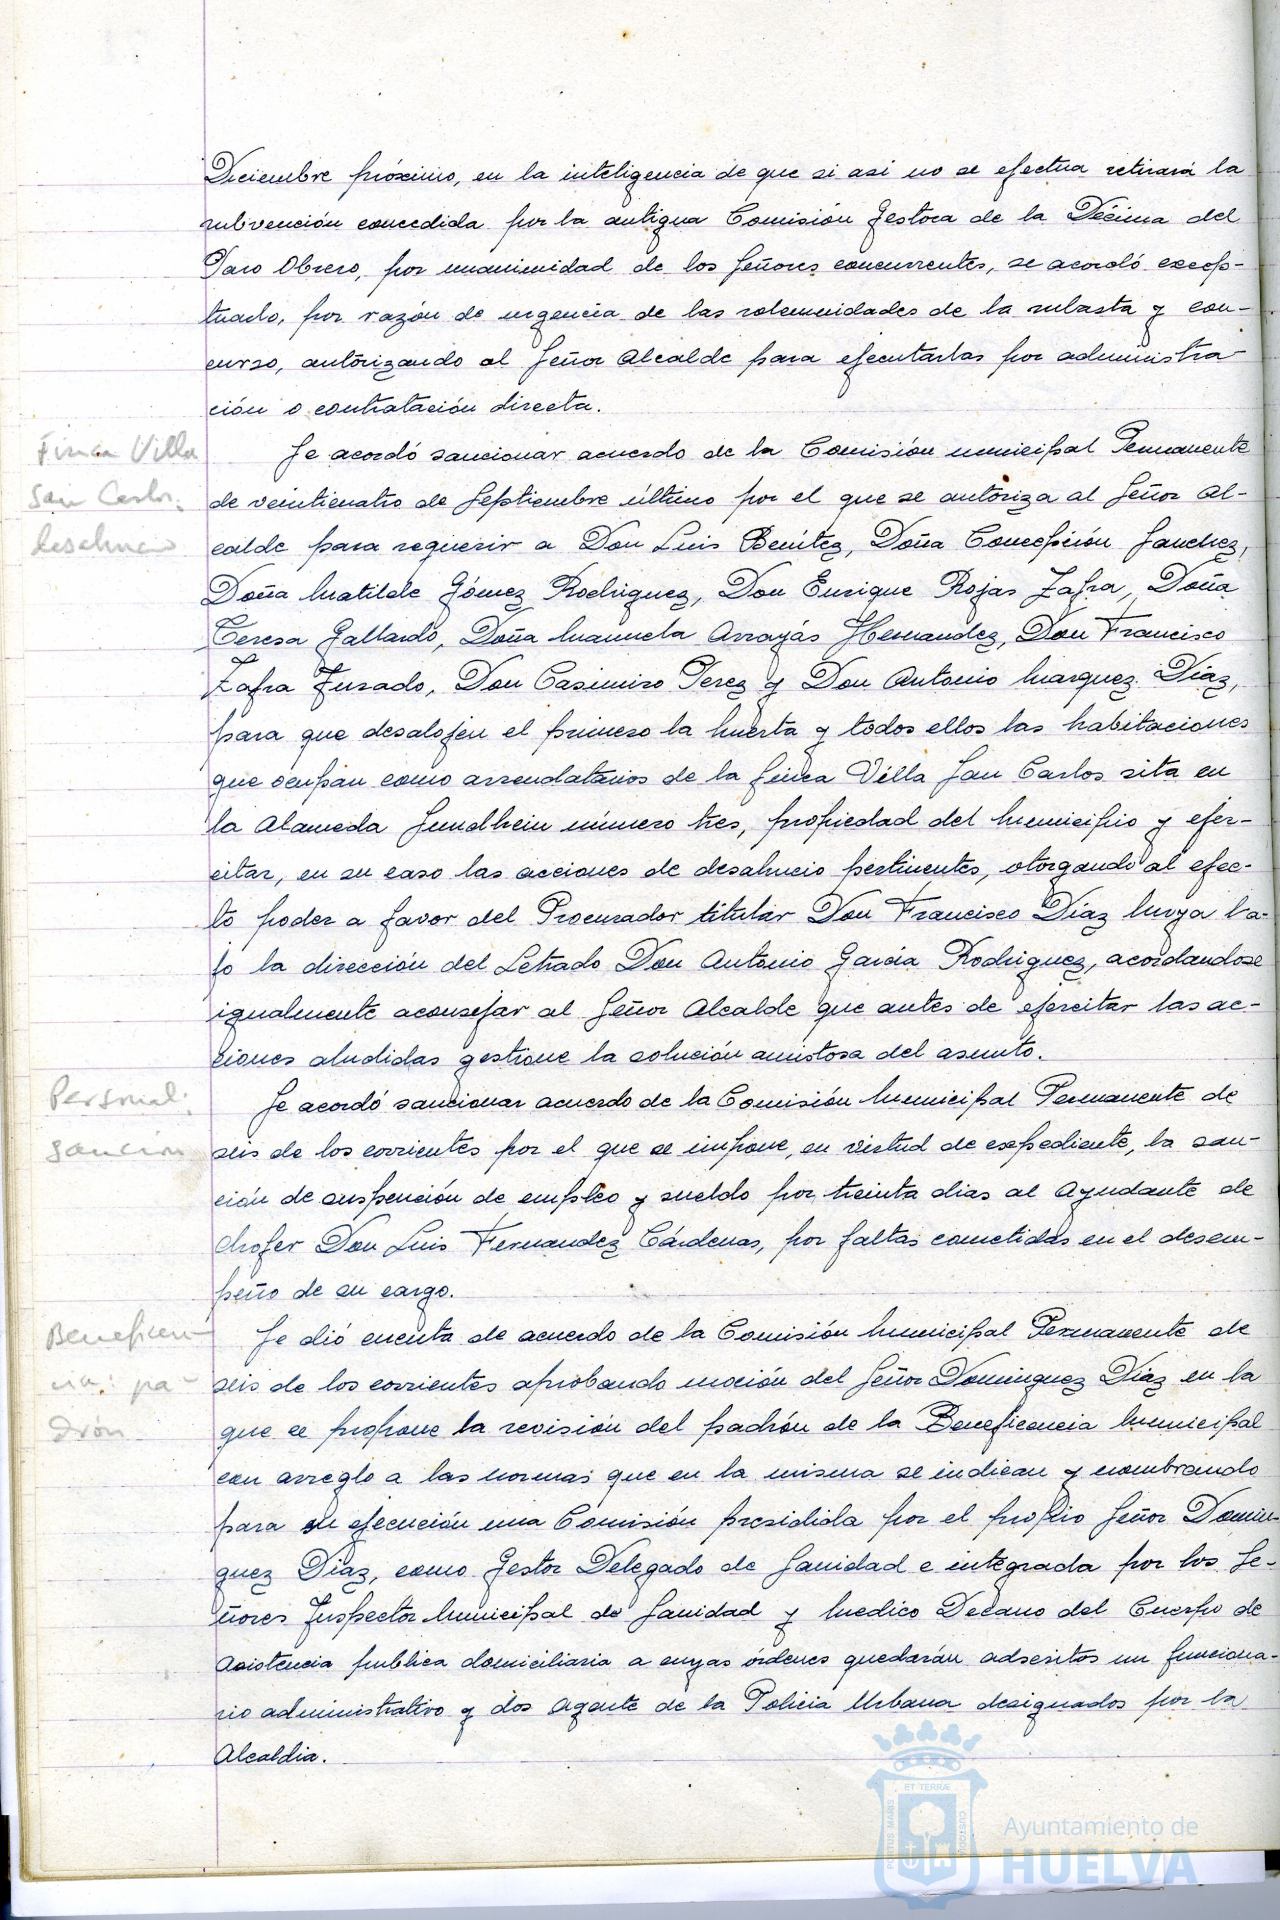 Diciembre próximo, en la inteligencia de que si asi no se efectua retirará la
subvención concedida por la antigua Comisión Gestora de la Décima del
Paro Obrero, por unanimidad de los Señores concurrentes, se acordó excep-
tuarlo, por razón de urgencia de las solemnidades de la subasta y con-
curso, autorizando al Señor Alcalde para ejecutarlas por administra-
ción o contratación directa.
Finca Villa
San Carlos:
desahucio
Se acordó sancionar acuerdo de la Comisión municipal Permanente
de veinticuatro de Septiembre último por el que se autoriza al Señor Al-
calde para requerir a Don Luis Benítez, Doña Concepción Sanchez,
Doña Matilde Gómez Rodriguez, Don Enrique Rojas Zafra, Doña
Teresa Gallardo, Doña Manuela Arrayás Hernandez, Don Francisco
Zafra Jurado, Don Casimiro Perez y Don Antonio Marquez Díaz,
para que desalojen el primero la huerta y todos ellos las habitaciones
que ocupan como arrendatarios de la finca Villa San Carlos sita en
la Alameda Sundhein número tres, propiedad del Municipio y ejer-
citar, en su caso las acciones de desahucio pertinentes, otorgando al efec-
to poder a favor del Procurador titular Don Francisco Díaz Moya ba-
jo la dirección del Letrado Don Antonio García Rodriguez, acordandose
igualmente aconsejar al Señor Alcalde que antes de ejercitar las ac-
ciones aludidas gestione la solución amistosa del asunto.
Personal:
sanción
Se acordó sancionar acuerdo de la Comisión Municipal Permanente de
seis de los corrientes por el que se impone, en virtud de expediente, la san-
ción de suspención de empleo y sueldo por treinta dias al Ayudante de
chofer Don Luis Fernandez Cárdenas, por faltas cometidas en el desem-
peño de su cargo.
Beneficen-
cia: pa-
drón
Se dió cuenta de acuerdo de la Comisión Municipal Permanente de
seis de los corrientes aprobando moción del Señor Dominguez Diaz en la
que se propone la revisión del padrón de la Beneficencia Municipal
con arreglo a las normas que en la misma se indican y nombrando
para su ejecución una Comisión presidida por el propio Señor Domin-
guez Diaz, como Gestor Delegado de Sanidad e integrada por los Se-
ñores Inspector Municipal de Sanidad y Medico Decano del Cuerpo de
Asistencia publica domiciliaria a cuyas órdenes quedarán adscritos un funciona-
rio administrativo y dos Agente de la Policia Urbana designados por la
Alcaldia.
ET TERRÆ
PORTUS MARIS
CUSTODIA
Ayuntamiento de
HUELVA